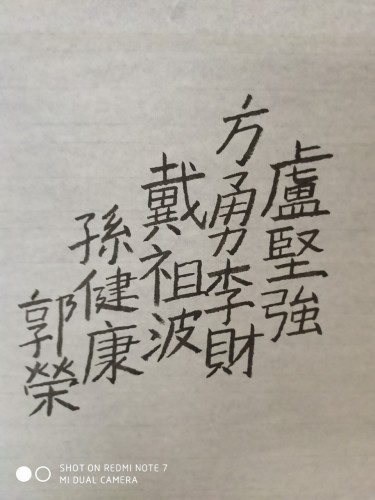 盧堅強
方勇李財
戴祖波
孫健康
郭榮
SHOT ON REDMI NOTE 7
MI DUAL CAMERA